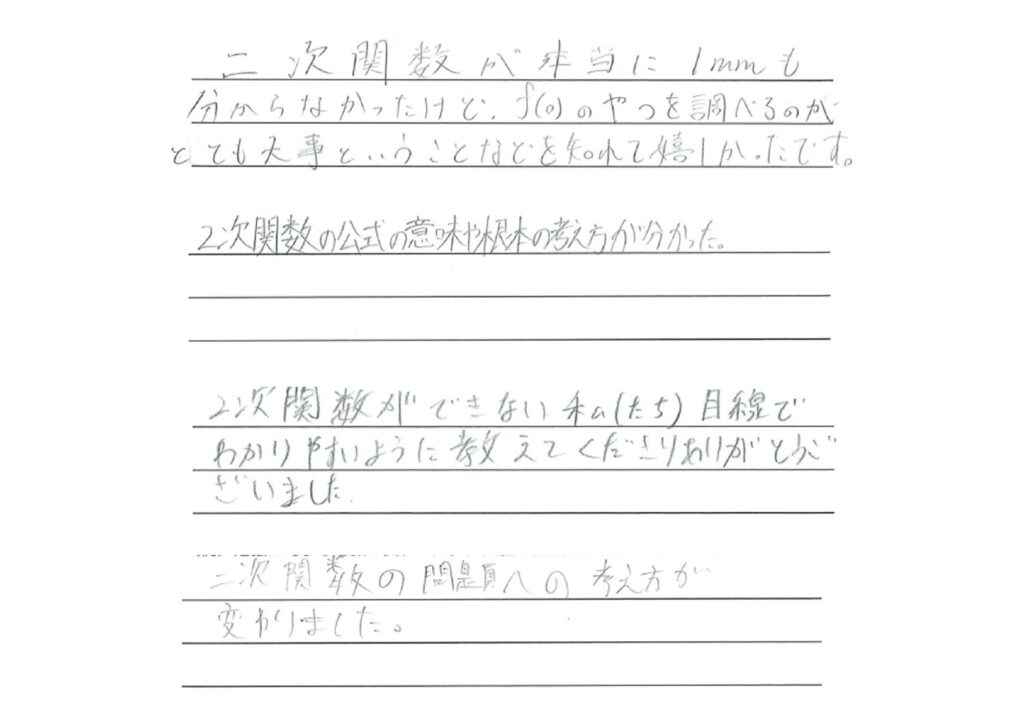 二次関数が本当に1mmも
分からなかったけど、f(0)のやつを調べるのが
とても大事ということなどを知れて嬉しかったです。
2次関数の公式の意味や根本の考え方が分かった。
2次関数ができない私(たち)目線で
わかりやすいように教えてくださりありがとうご
ざいました。
二次関数の問題への考え方が
変わりました。